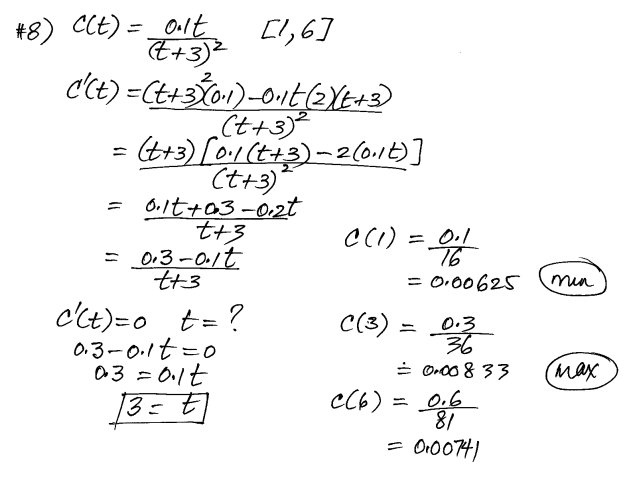 #8) C(t) = 0.1t / (t+3)² [1,6]
C'(t) = (t+3)²(0.1) - 0.1t(2)(t+3) / (t+3)²
= (t+3)[0.1(t+3) - 2(0.1t)] / (t+3)²
= 0.1t + 0.3 - 0.2t / t+3
= 0.3 - 0.1t / t+3
C'(t) = 0 t = ?
0.3 - 0.1t = 0
0.3 = 0.1t
3 = t
C(1) = 0.1 / 16
= 0.00625 min
C(3) = 0.3 / 36
≐ 0.00833 max
C(6) = 0.6 / 81
= 0.00741